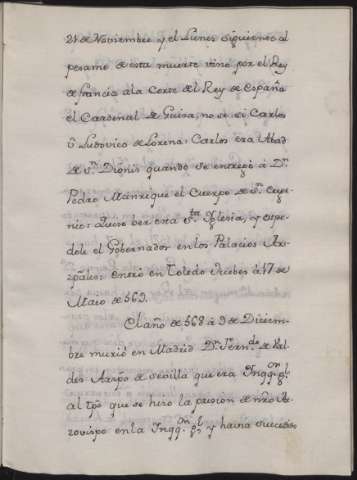 21 de Noviembre y el Lunes siguiente al
pesame de esta muerte vino por el Rey
de francia ala Corte del Rey de España
el Cardenal de Guisa, no se si Carlos
ú Ludovico de Lorena: Carlos era Abad
de Sⁿ Dionis quando se entregó á Dⁿ
Pedro Manrique el Cuerpo de Sⁿ Euge-
nio: quiso ver esta Sᵗᵃ Yglesia, y ospe-
dole el Gobernador en los Palacios Ar-
zpáles: entró en Toledo Juebes á 17 de
Marzo de 569.
El año de 568 á 9 de Diciem-
bre murió en Madrid Dⁿ Fernᵈᵒ de Val-
des Arzpō de Sevilla que era Ynqqᵒⁿ gˡ
al tpō que se hizo la prision de nr̄o Ar-
zovispo en la Ynqqᵒⁿ gˡ y havia